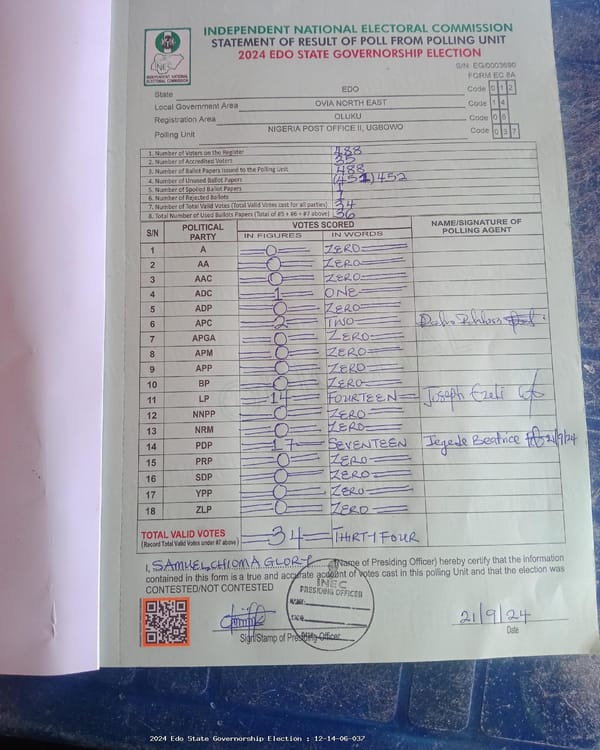 INDEPENDENT NATIONAL ELECTORAL COMMISSION
STATEMENT OF RESULT OF POLL FROM POLLING UNIT
2024 EDO STATE GOVERNORSHIP ELECTION
INEC
INDEPENDENT NATIONAL ELECTORAL COMMISSION
S/N: EG/0003690
FORM EC 8A
State EDO Code 0 1 2
Local Government Area OVIA NORTH EAST Code 1 4
Registration Area OLUKU Code 0 6
Polling Unit NIGERIA POST OFFICE II, UGBOWO Code 0 3 7
1. Number of Voters on the Register 488
2. Number of Accredited Voters 35
3. Number of Ballot Papers Issued to the Polling Unit 488
4. Number of Unused Ballot Papers (451) 452
5. Number of Spoiled Ballot Papers 1
6. Number of Rejected Ballots 1
7. Number of Total Valid Votes (Total Valid Votes cast for all parties) 34
8. Total Number of Used Ballots Papers (Total of #5 + #6 + #7 above) 36
S/N POLITICAL PARTY VOTES SCORED NAME/SIGNATURE OF POLLING AGENT
IN FIGURES IN WORDS
1 A 0 ZERO
2 AA 0 ZERO
3 AAC 0 ZERO
4 ADC 1 ONE
5 ADP 0 ZERO
6 APC 2 TWO
7 APGA 0 ZERO
8 APM 0 ZERO
9 APP 0 ZERO
10 BP 0 ZERO
11 LP 14 FOURTEEN Joseph Ezeli
12 NNPP 0 ZERO
13 NRM 0 ZERO
14 PDP 17 SEVENTEEN Iegede Beatrice 21/9/24
15 PRP 0 ZERO
16 SDP 0 ZERO
17 YPP 0 ZERO
18 ZLP 0 ZERO
TOTAL VALID VOTES 34 THIRTY FOUR
(Record Total Valid Votes under #7 above)
I, SAMUEL CHIOMA GLORY (Name of Presiding Officer) hereby certify that the information
contained in this form is a true and accurate account of votes cast in this polling Unit and that the election was
CONTESTED/NOT CONTESTED
INEC
PRESIDING OFFICER
21/9/24
Sign/Stamp of Presiding Officer Date
2024 Edo State Governorship Election : 12-14-06-037